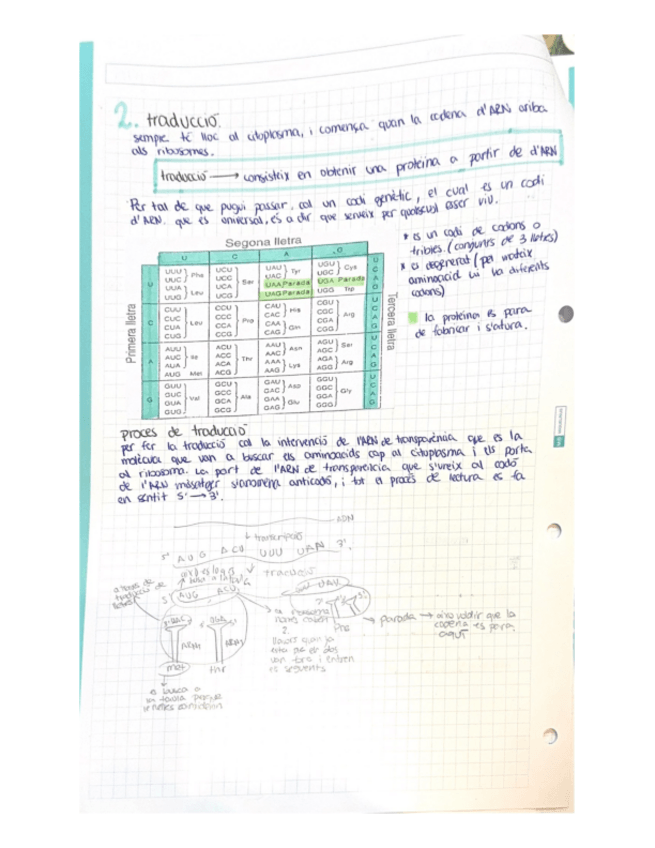 2. traducció.
sempre té lloc al citoplasma, i comença quan la cadena d'ARN arriba
als ribosomes.
traducció → consisteix en obtenir una proteïna a partir de d'ARN
Per tal de que pugui passar, cal un codi genètic, el cual es un codi
d'ARN. que és universal, és a dir que serveix per qualsevol ésser viu.
* es un codi de codons o
tribles. (conjunts de 3 lletres)
* es degenerat (pel mateix
aminoàcid hi ha diferents
codons)
la proteïna es para
de fabricar i s'atura.
Segona lletra
Primera lletra
Tercera lletra
U C A G
U
UUU UUC } Phe UCU UCC UCA UCG } Ser UAU UAC } Tyr UGU UGC } Cys U C A G
UUA UUG } Leu UAA Parada UGA Parada
UAG Parada UGG Trp
C
CUU CUC CUA CUG } Leu CCU CCC CCA CCG } Pro CAU CAC } His CGU CGC CGA CGG } Arg U C A G
CAA CAG } Gln
A
AUU AUC AUA } Ile ACU ACC ACA ACG } Thr AAU AAC } Asn AGU AGC } Ser U C A G
AUG Met AAA AAG } Lys AGA AGG } Arg
G
GUU GUC GUA GUG } Val GCU GCC GCA GCG } Ala GAU GAC } Asp GGU GGC GGA GGG } Gly U C A G
GAA GAG } Glu
procés de traducció
per fer la traducció cal la intervenció de l'ARN de transparència que es la
molècula que van a buscar els aminoàcids cap al citoplasma i els porta
al ribosoma. La part de l'ARN de transparència que s'uneix al codó
de l'ARN missatger s'anomena anticodó, i tot el procés de lectura es fa
en sentit 5' → 3'.
ADN
↓ transcripció
5' AUG ACU UUU UAA 3'.
↓ traducció
5' AUG ACU
UUU UAU
met thr
Phe
→ parada → això voldir que la
es para
aquí
2.
es busca a
la taula perque